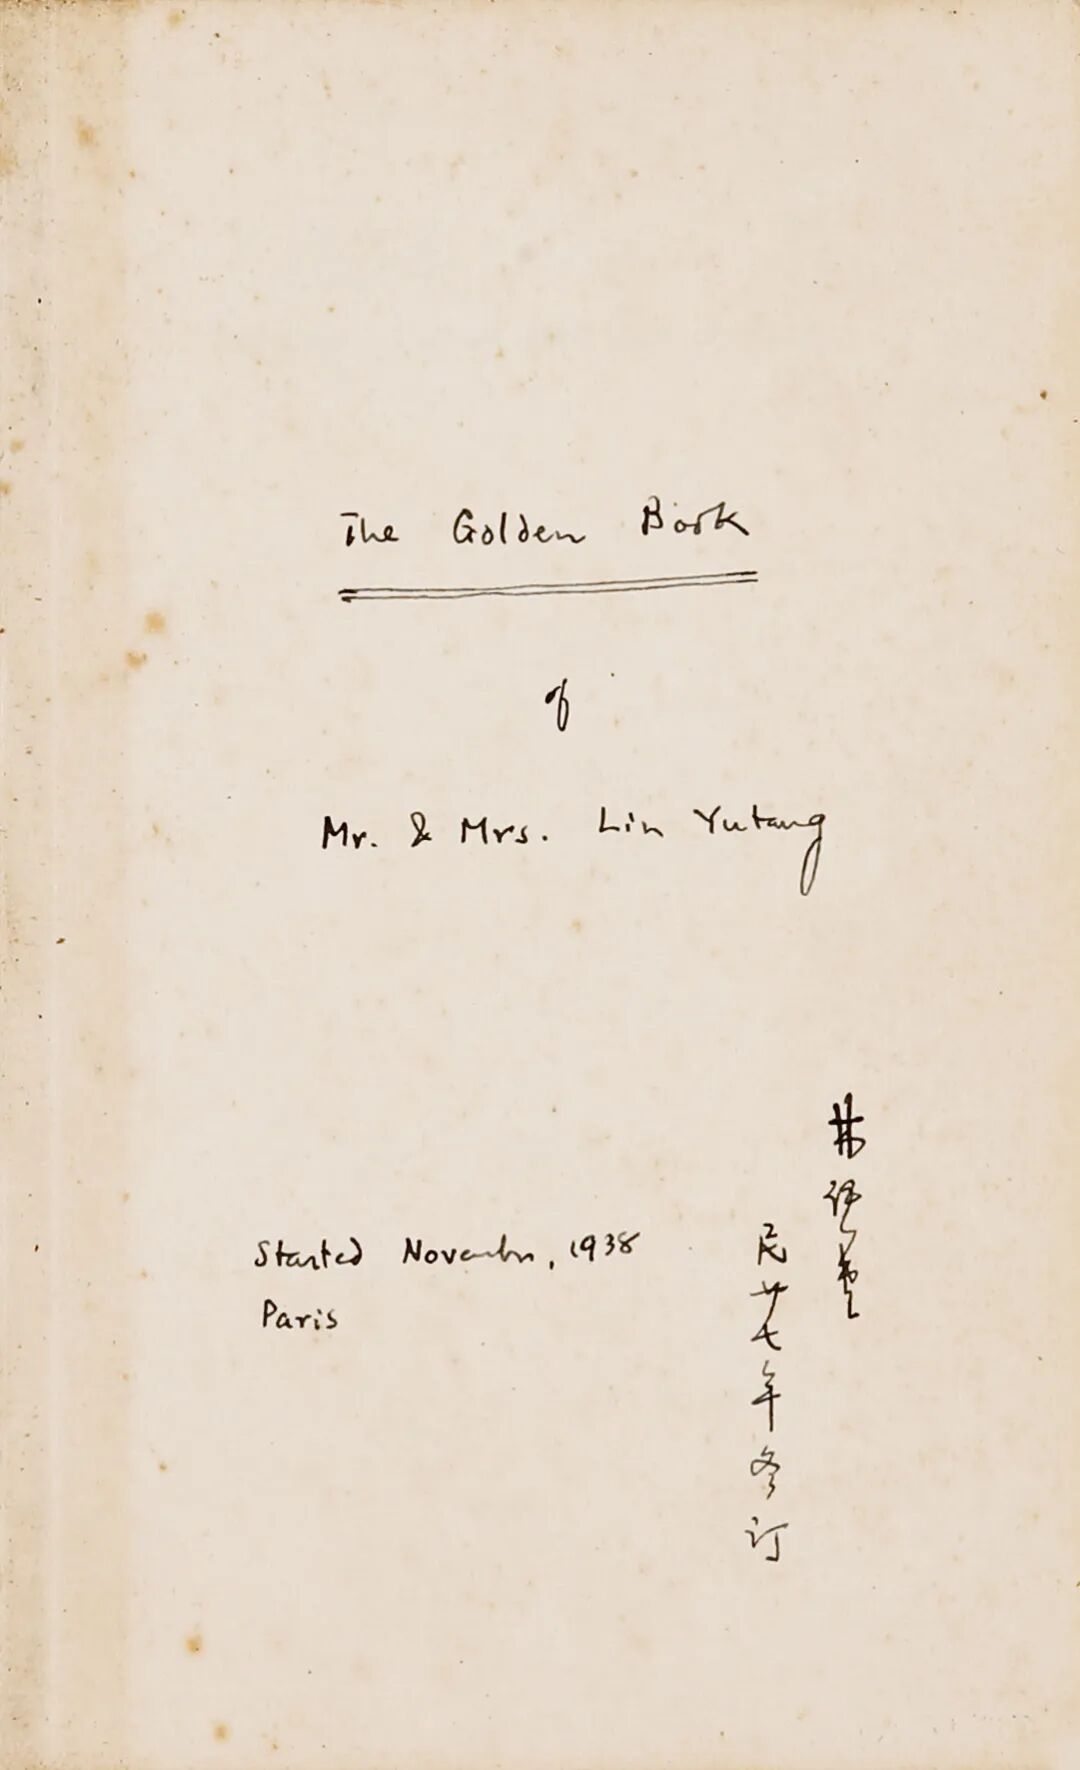 The Golden Book
of
Mr. & Mrs. Lin Yutang
Started November, 1938
Paris
林語堂
民廿七年冬订